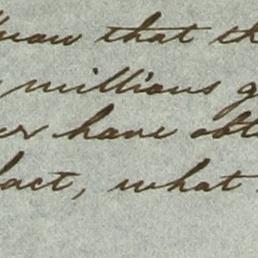 know that th
millions g
er have obt
fact, what